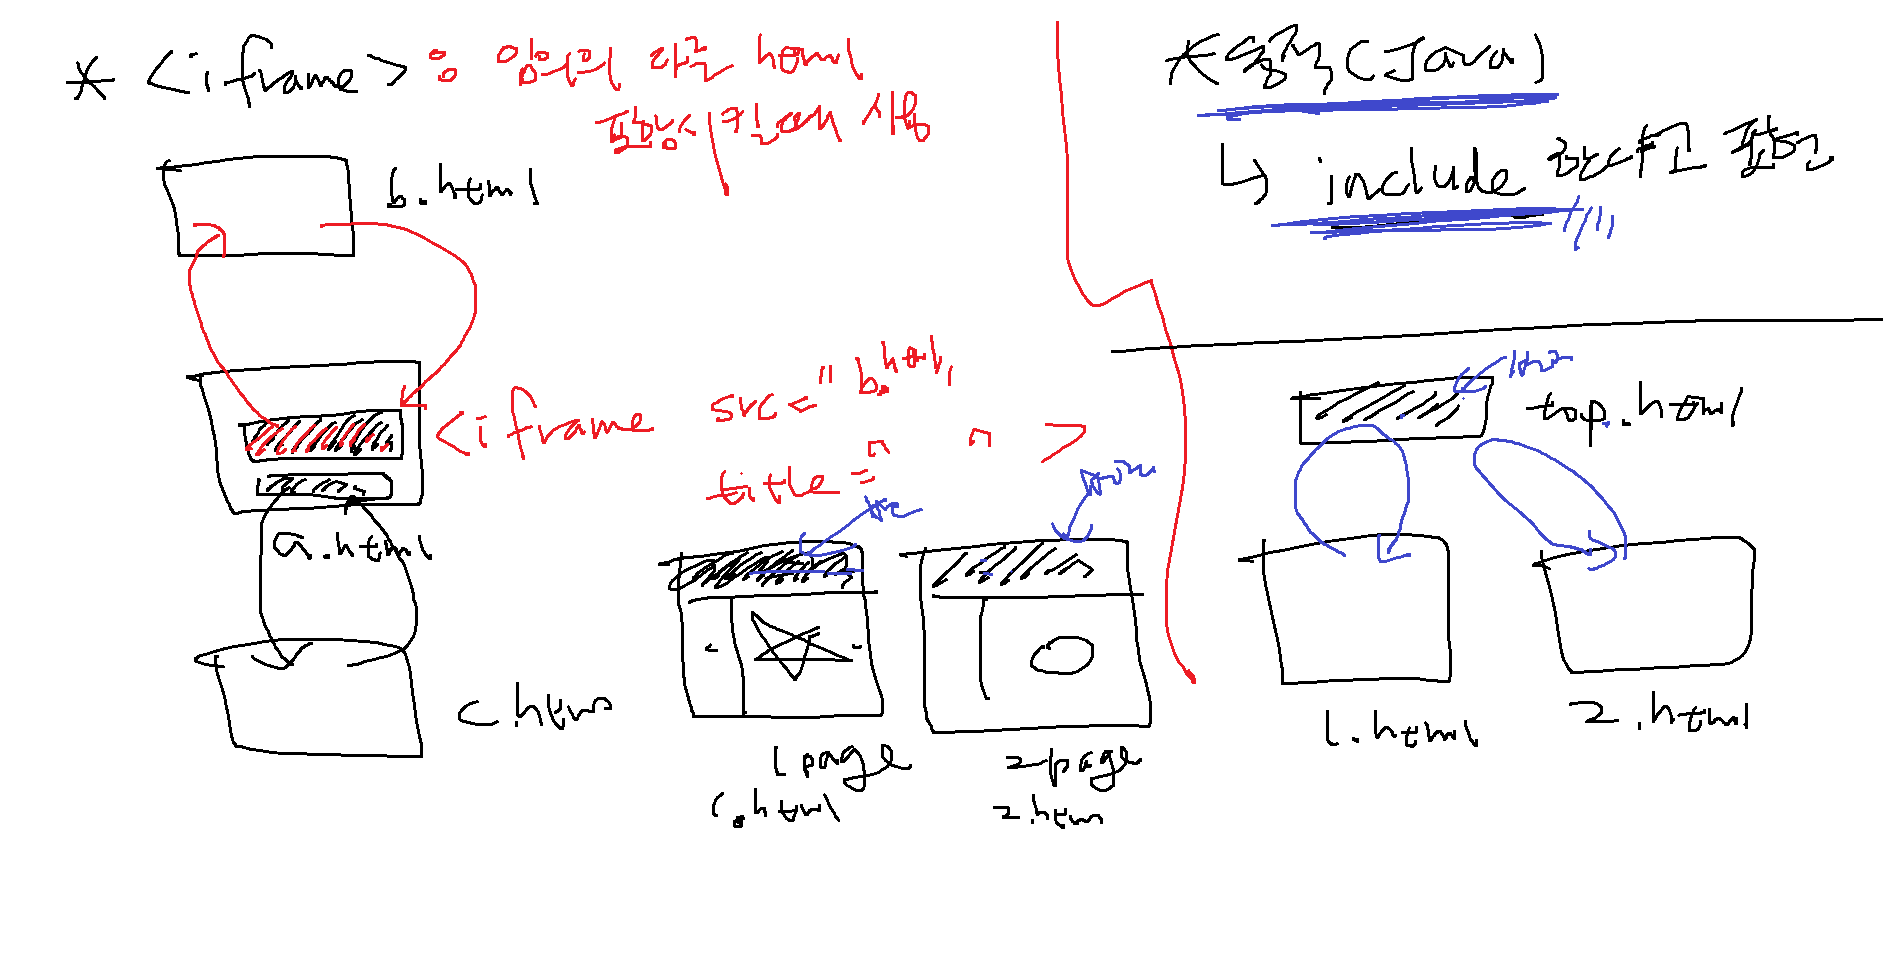 * <iframe> : 임의의 다른 html
포함시킬때 사용
b.html
<iframe src="b.html"
title=" " >
a.html
c.htm
1page
2page
1.html
2.htm
* 동적(Java)
↳ include 한다고 표현
top.html
1.html
2.html